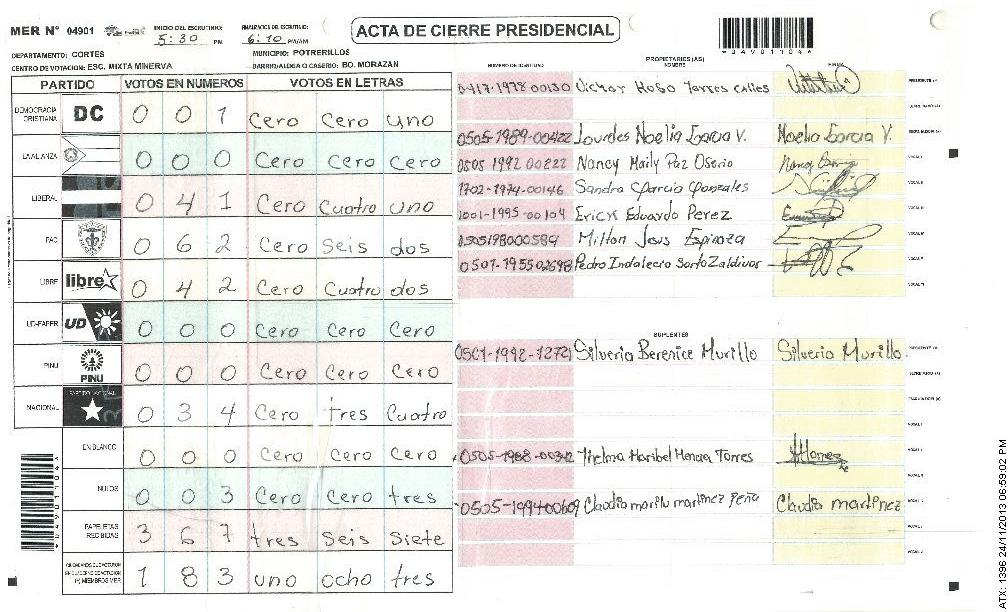 MER N° 04901
INICIO DEL ESCRUTINIO: 5:30 PM
FINALIZACION DEL ESCRUTINIO: 6:10 PM/AM
ACTA DE CIERRE PRESIDENCIAL
DEPARTAMENTO: CORTES
MUNICIPIO: POTRERILLOS
CENTRO DE VOTACION: ESC. MIXTA MINERVA
BARRIO/ALDEA O CASERIO: BO. MORAZAN
PARTIDO VOTOS EN NUMEROS VOTOS EN LETRAS
DEMOCRACIA CRISTIANA DC 0 0 1 Cero Cero uno
LA ALIANZA 0 0 0 Cero Cero Cero
LIBERAL 0 4 1 Cero Cuatro uno
PAC 0 6 2 Cero Seis dos
LIBRE libre 0 4 2 Cero Cuatro dos
UD-FAPER UD 0 0 0 Cero Cero Cero
PINU PINU 0 0 0 Cero Cero Cero
NACIONAL PARTIDO NACIONAL 0 3 4 Cero tres Cuatro
EN BLANCO 0 0 0 Cero Cero Cero
NULOS 0 0 3 Cero Cero tres
PAPELETAS RECIBIDAS 3 6 7 tres Seis Siete
(+) MIEMBROS MER 1 8 3 uno ocho tres
PROPIETARIOS (AS)
NUMERO DE IDENTIDAD NOMBRE FIRMA
1978-00130 Victor Hugo Torres
0505-1989-00422 Lourdes Noelia Garcia V. Noelia Garcia V.
0505 1992 00222 Nancy Maily Paz Osorio
1702-1974-00146 Sandra Garcia Gonzales
1001-1995-00104 Erick Eduardo Perez
0505198000589 Milton Jesus Espinoza
0507-195502698 Pedro Indalecio Sorto Zaldivar
SUPLENTES
0501-1992-1272 Silveria Berenice Murillo Silveria Murillo
0505-1988-00342 Thelma Maribel Torres
0505-199400609 Claudia marilu martinez Peña Claudia martinez
ATX: 1396 24/11/2013 06:59:02 PM